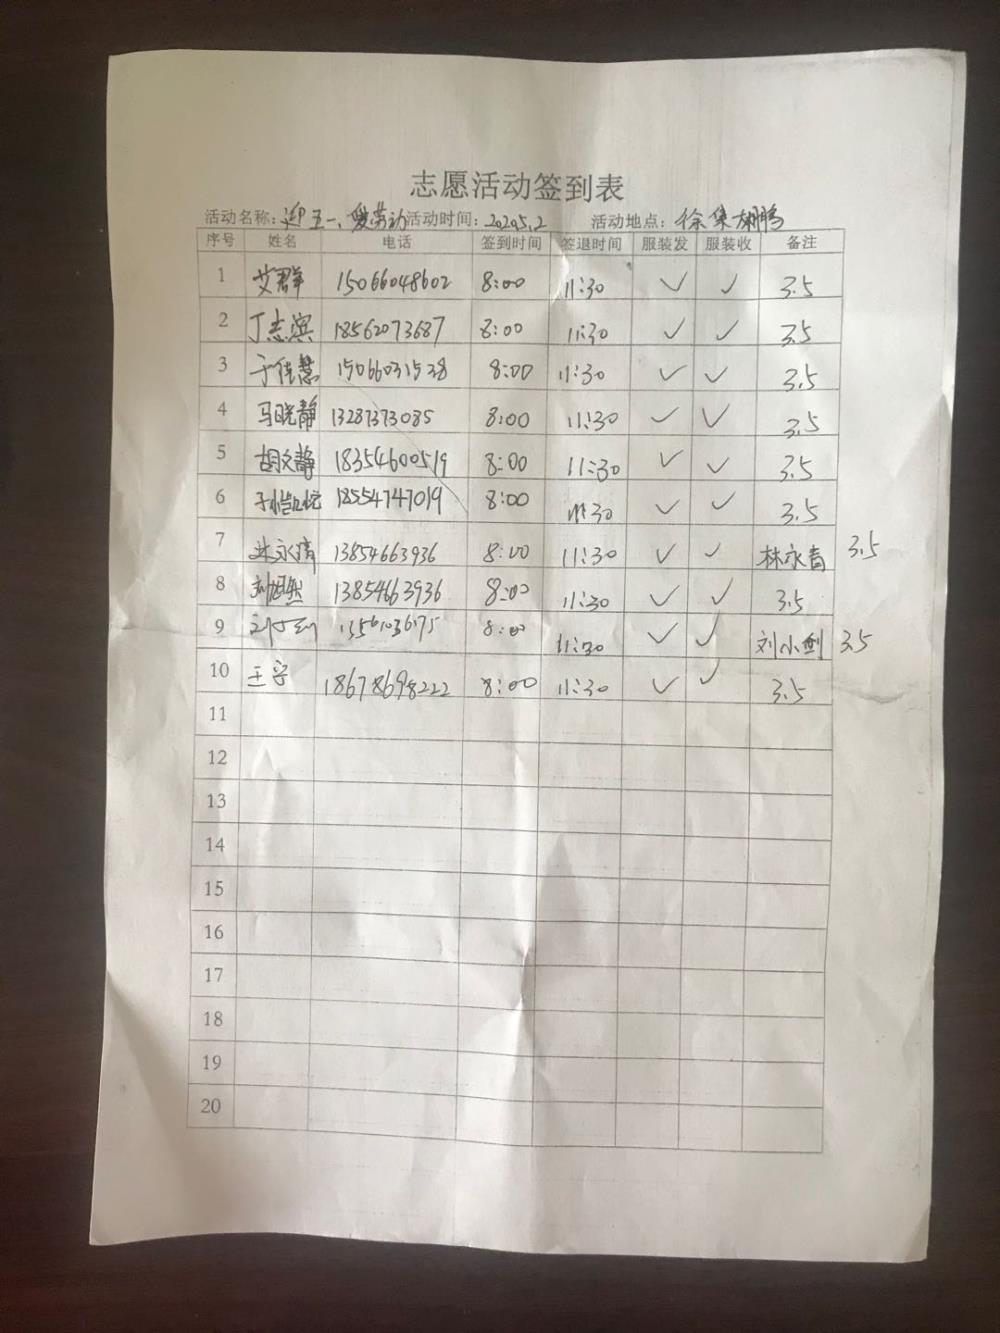 志愿活动签到表
活动名称：迎五一、爱劳动 活动时间：2020.5.2 活动地点：徐集大棚
序号 姓名 电话 签到时间 签退时间 服装发 服装收 备注
1 艾群 15066048602 8:00 11:30 ✓ ✓ 3.5
2 丁志滨 18562073687 8:00 11:30 ✓ ✓ 3.5
3 于佳慧 15066031528 8:00 11:30 ✓ ✓ 3.5
4 马晓静 13287373085 8:00 11:30 ✓ ✓ 3.5
5 胡文静 18354600519 8:00 11:30 ✓ ✓ 3.5
6 18554747019 8:00 11:30 ✓ ✓ 3.5
7 林永青 13854663936 8:00 11:30 ✓ ✓ 林永青 3.5
8 13854663936 8:00 11:30 ✓ ✓ 3.5
9 刘小剑 13561036175 8:00 11:30 ✓ ✓ 刘小剑 3.5
10 王宁 18678698222 8:00 11:30 ✓ ✓ 3.5
11
12
13
14
15
16
17
18
19
20